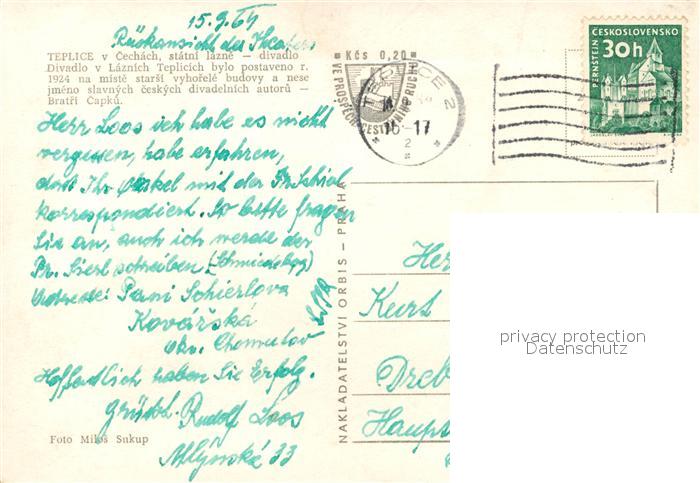 15.9.64
Rückansicht des Theaters
TEPLICE v Čechách, státní lázně — divadlo
Divadlo v Lázních Teplicích bylo postaveno r.
1924 na místě starší vyhořelé budovy a nese
jméno slavných českých divadelních autorů —
Bratří Čapků.
Herr Loos ich habe es nicht
vergessen, habe erfahren,
dass Ihr Onkel mit der Fr.
korrespondiert. So bitte fragen
Sie an, auch ich werde der
Fr. schreiben (Schmiedeberg)
Adresse: Paní Schierlova
Kovářská
okr. Chomutov
Hoffentlich haben Sie Erfolg.
Grüsst Rudolf Loos
Mlýnská 33
Foto Miloš Sukup
NAKLADATELSTVÍ ORBIS — PRAHA
Kčs 0,20
VE PROSPĚCH CESTOVNÍHO RUCHU
TEPLICE 2
16-17
2
ČESKOSLOVENSKO
30h
PERNŠTEJN
Her
Kurt
Dreb
Haupt
privacy protection
Datenschutz